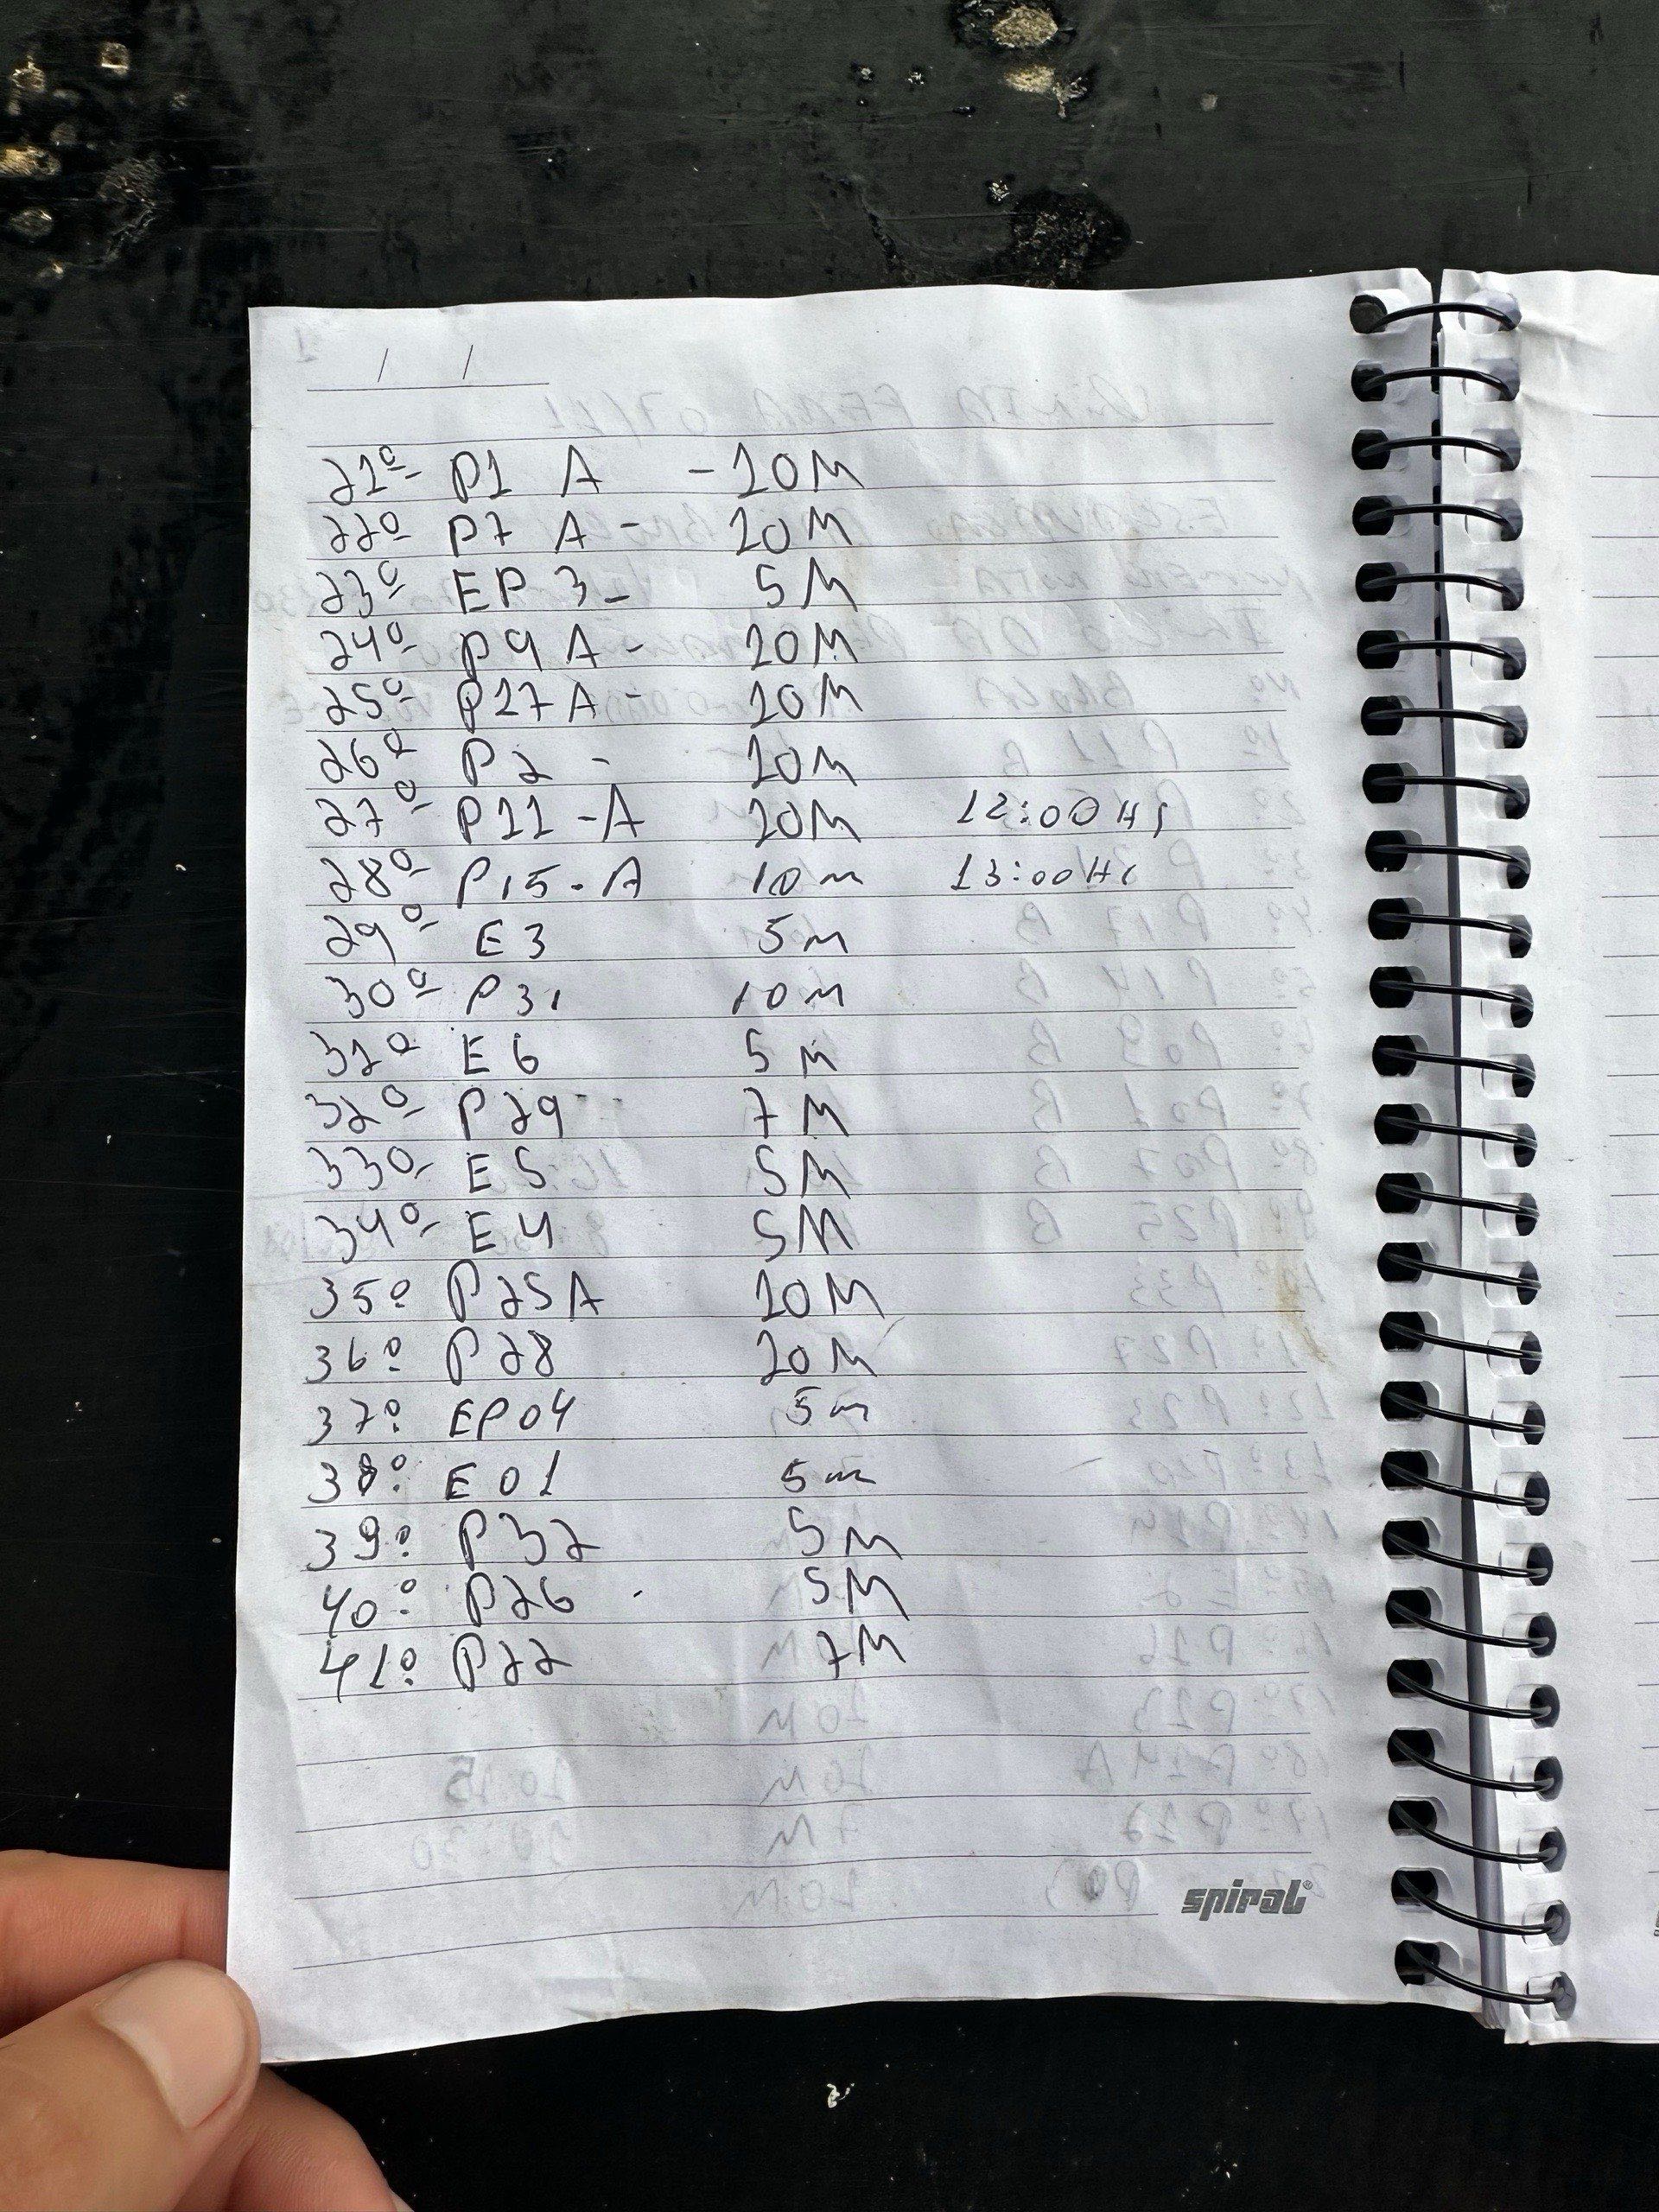 / /
21º- P1 A - 10M
22º- P7 A - 10M
23º- EP 3 - 5M
24º- P9 A - 10M
25º- P27A - 10M
26º P2 - 10M
27º- P11 -A 10M 12:00Hs
28º- P15-A 10m 13:00Hs
29º- E3 5M
30º- P31 10M
31º E6 5M
32º- P29 7M
33º- E5 5M
34º- E4 5M
35º P25A 10M
36º P28 10M
37º EP04 5m
38º E01 5m
39º P32 5M
40º P26 5M
41º P22 7M
spiral®